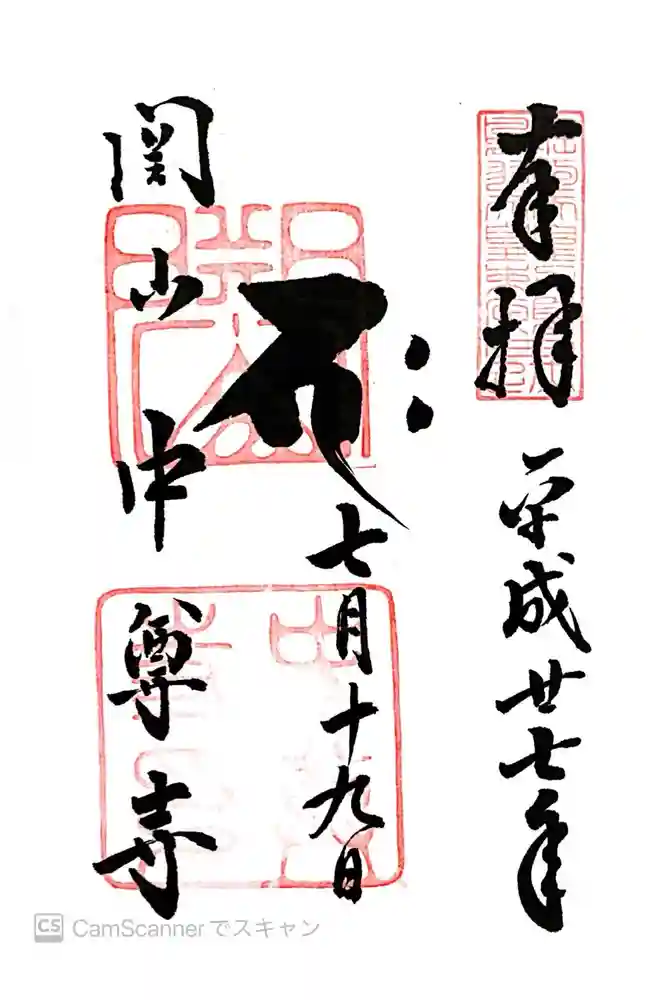 奉拝
平成廿七年
七月十九日
関山中尊寺
CS CamScannerでスキャン